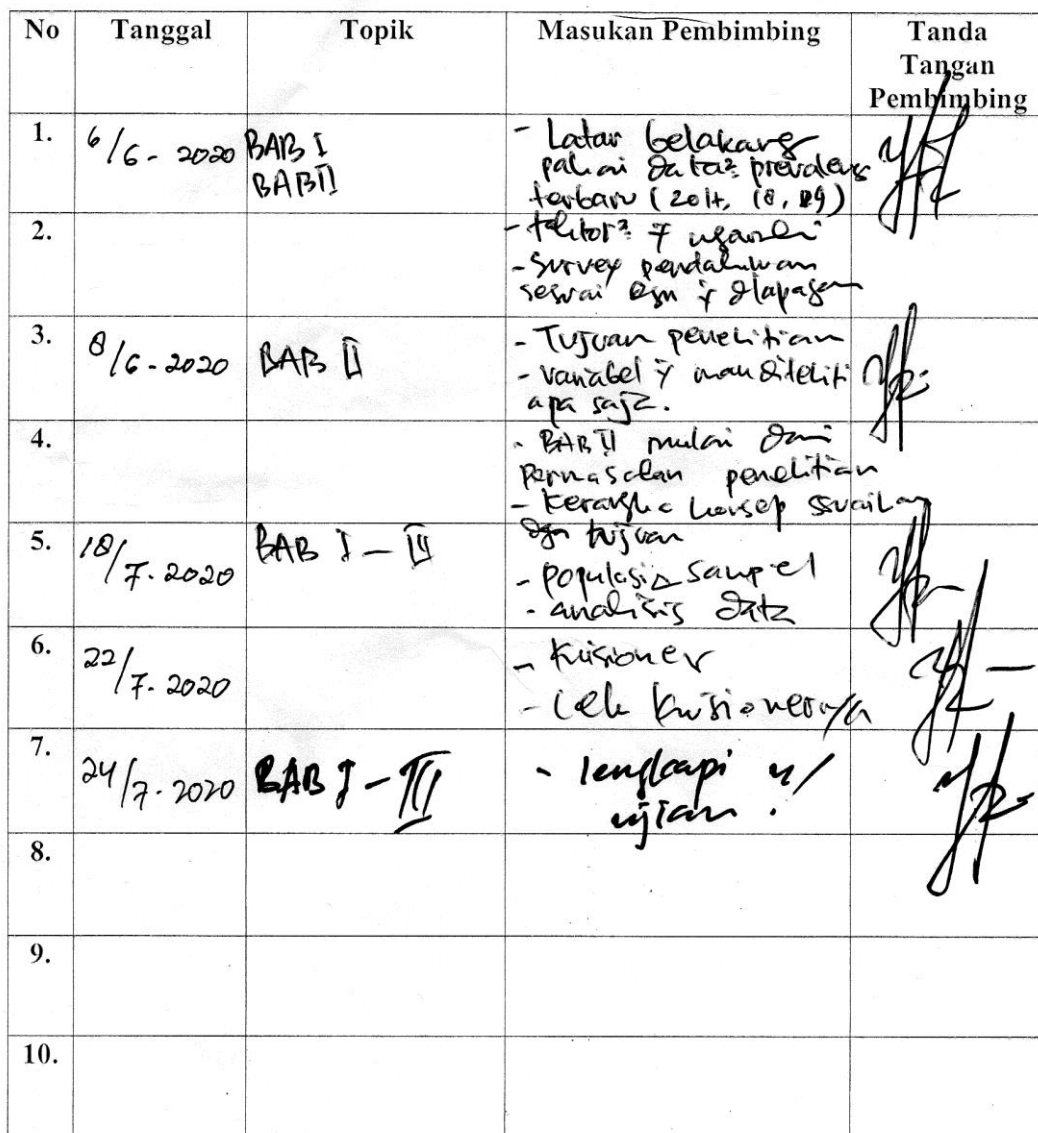 No Tanggal Topik Masukan Pembimbing Tanda
Tangan
Pembimbing
1. 6/6 - 2020 BAB I - Latar belakang
BAB II pakai data² prevalens
terbaru (2017, 18, 19)
2. - faktor² y
- Survey pendahuluan
sesuai dgn y dlapagan
3. 8/6 - 2020 BAB II - Tujuan penelitian
- variabel y mau diteliti
apa saja.
4. - BAB II mulai dari
permasalan penelitian
- kerangka konsep ssuaikan
dgn tujuan
5. 18/7. 2020 BAB I - III
- populasi sampel
- analisis data
6. 22/7. 2020 - Kuisioner
- Cek kuisionernya
7. 24/7. 2020 BAB I - III - lengkapi u/
ujian !
8.
9.
10.